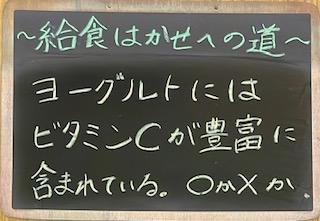 ～給食はかせへの道～
ヨーグルトには
ビタミンCが豊富に
含まれている。○か×か